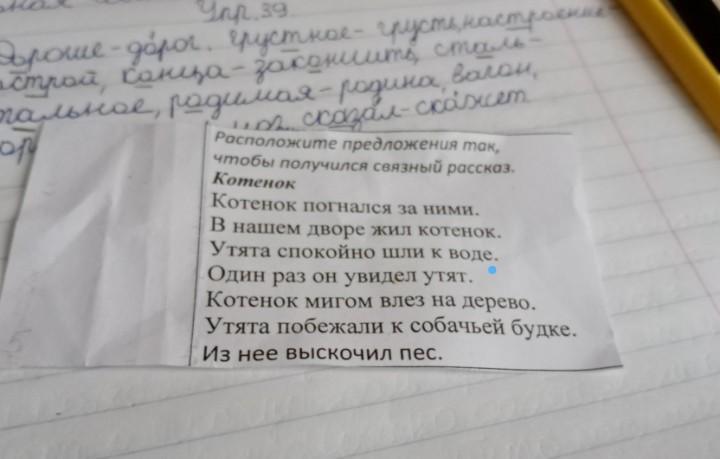 Упр. 39
дороше - дорог. грустное - грусть, настроение -
строй, конца - закончить, сталь -
стальное, родимая - родина, вагон,
сказал - скажет
Расположите предложения так,
чтобы получился связный рассказ.
Котенок
Котенок погнался за ними.
В нашем дворе жил котенок.
Утята спокойно шли к воде.
Один раз он увидел утят.
Котенок мигом влез на дерево.
Утята побежали к собачьей будке.
Из нее выскочил пес.